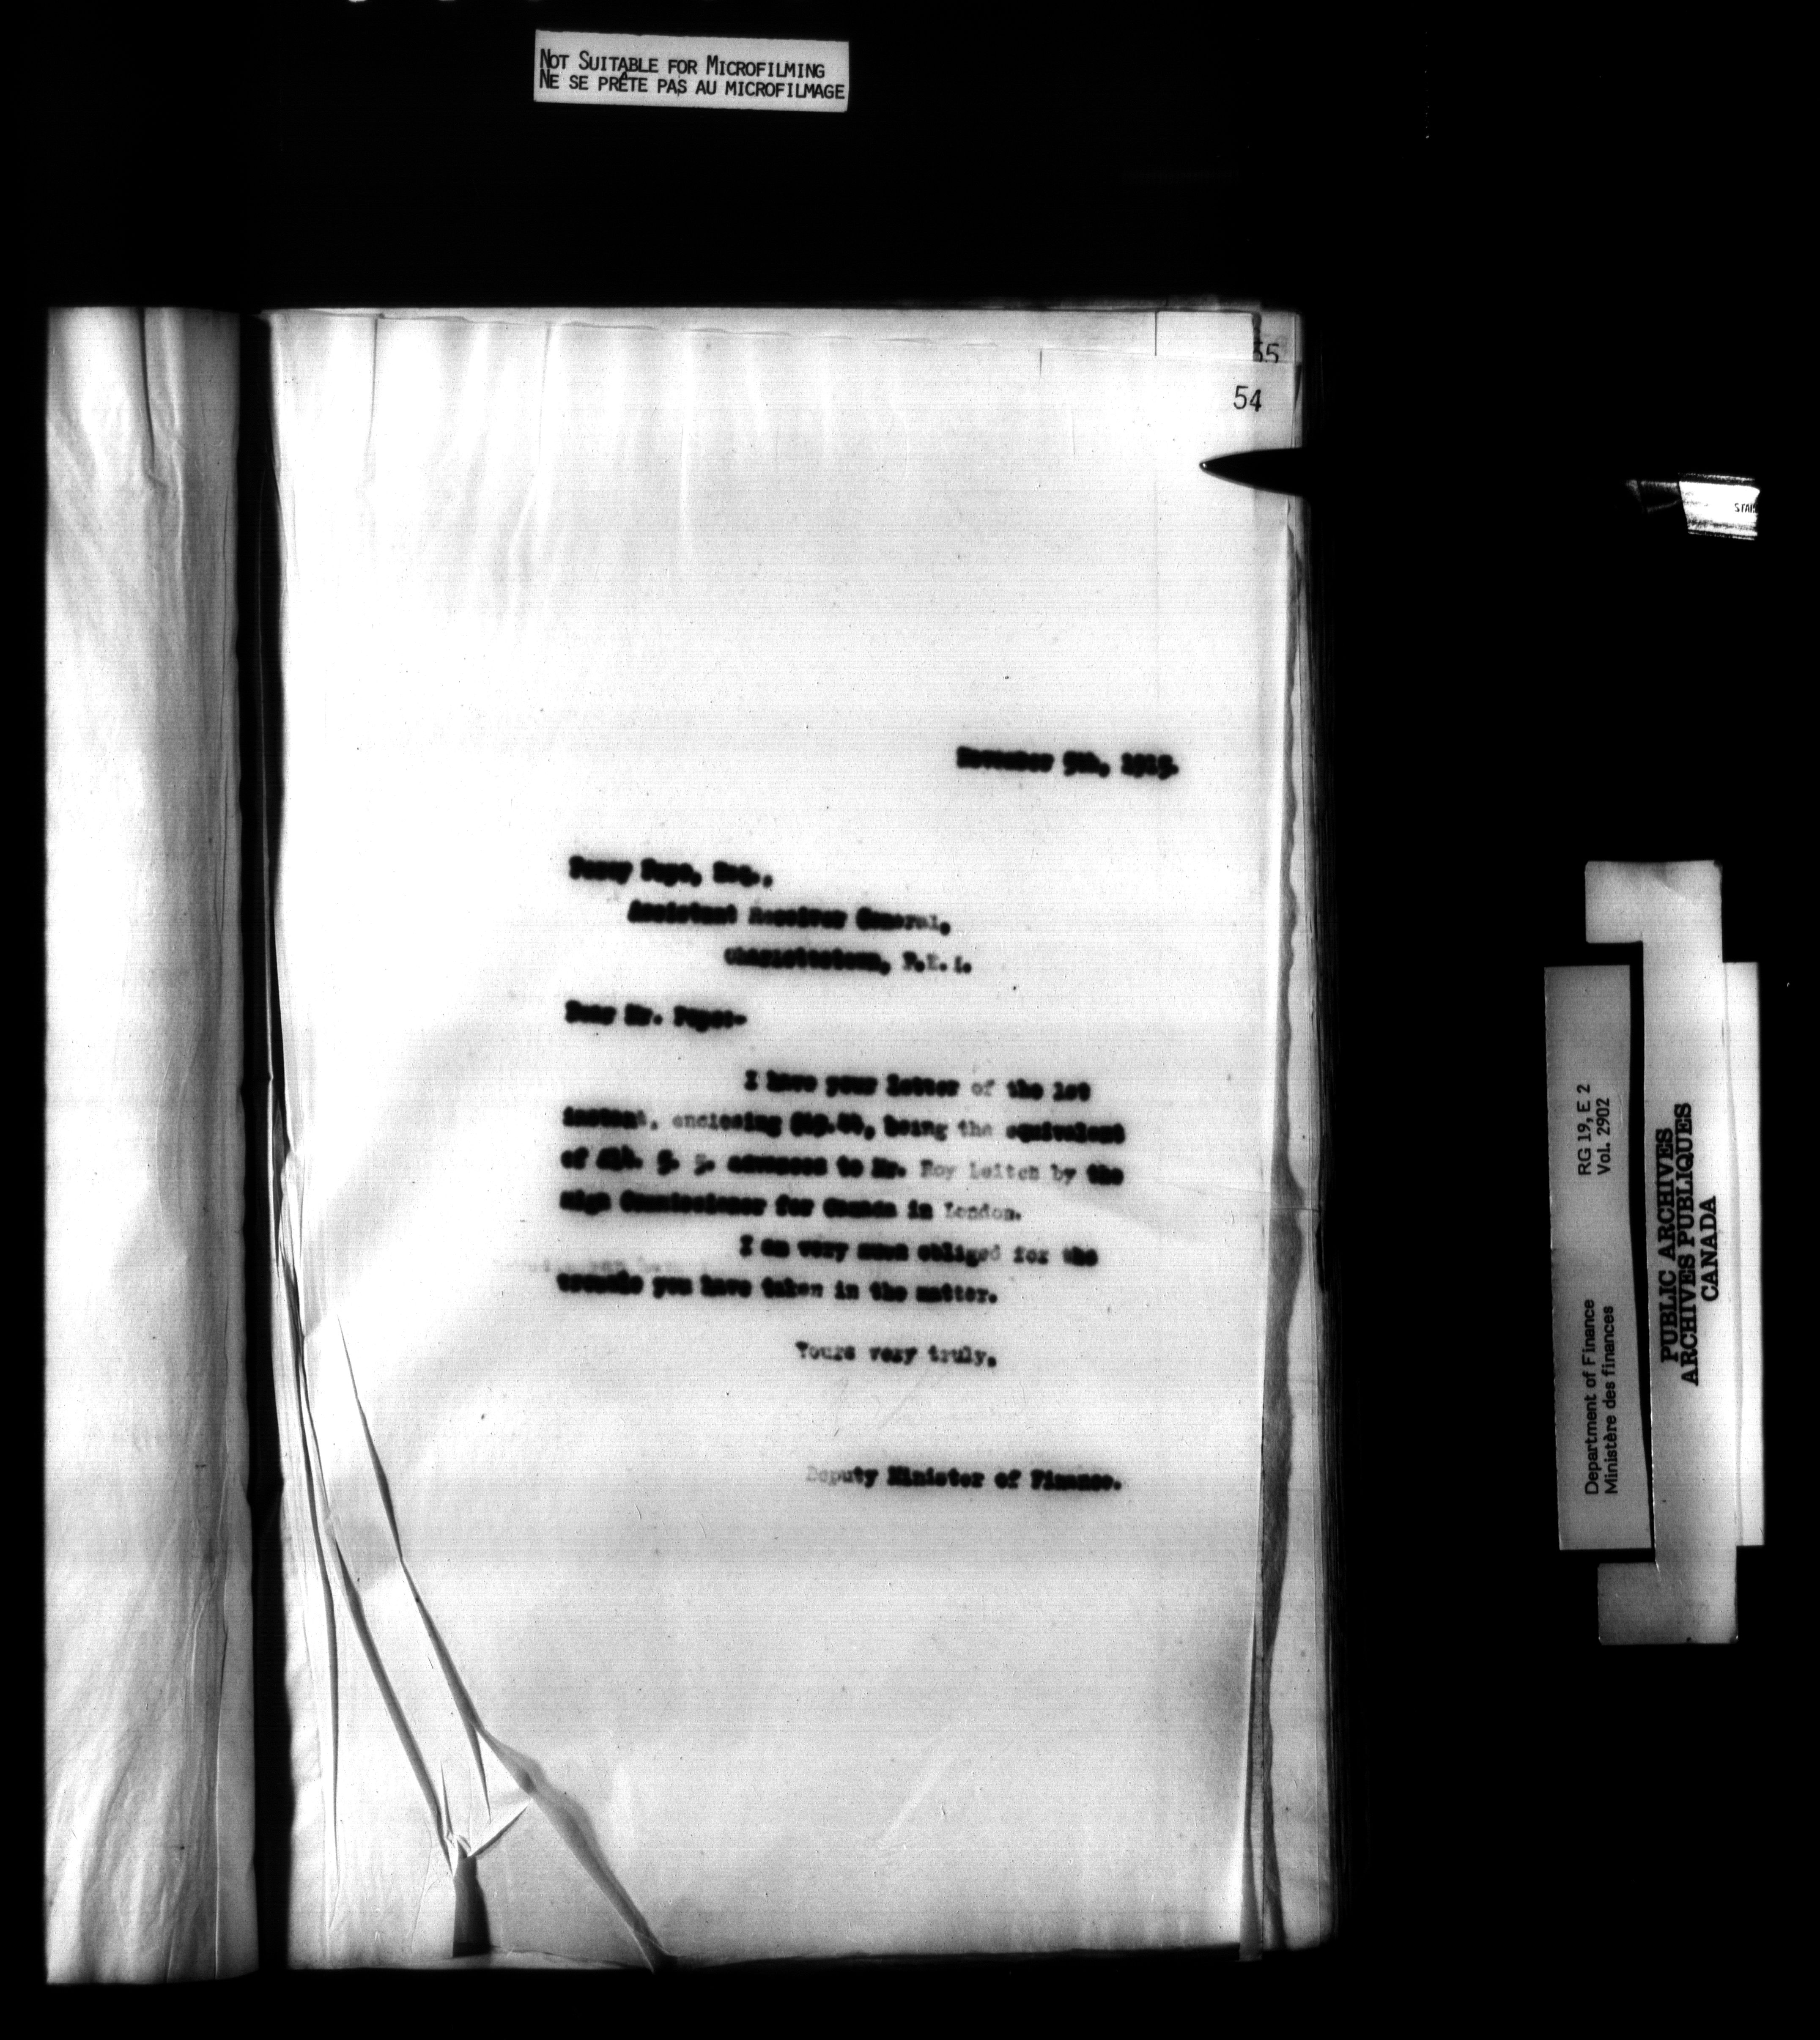 NOT SUITABLE FOR MICROFILMING
NE SE PRÊTE PAS AU MICROFILMAGE
55
54
November 5th, 1915.
Percy Pope, Esq.,
Assistant Receiver General,
Charlottetown, P.E.I.
Dear Mr. Pope:-
I have your letter of the 1st
instant, enclosing being the equivalent
of advanced to Mr. Roy Leitch by the
High Commissioner for Canada in London.
I am very much obliged for the
trouble you have taken in the matter.
Yours very truly,
Deputy Minister of Finance.
Department of Finance RG 19, E 2
Ministère des finances Vol. 2902
PUBLIC ARCHIVES
ARCHIVES PUBLIQUES
CANADA